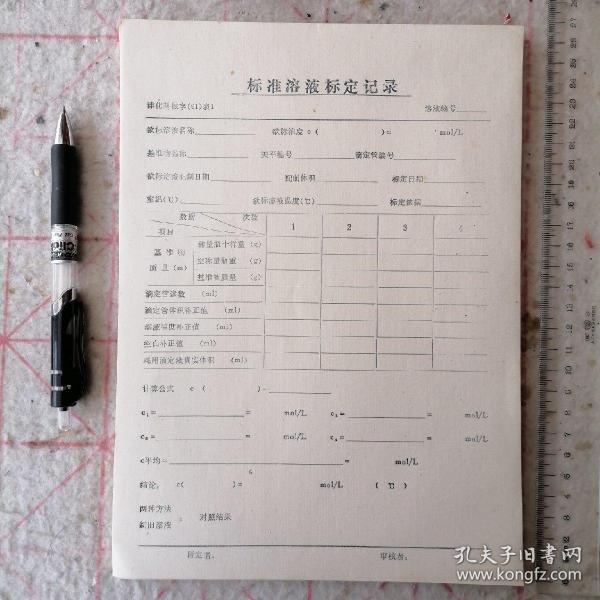 标准溶液标定记录
字(81)表1 溶液编号
欲标溶液名称 欲标浓度c( )≈ mol/L
基准物名称 天平编号 滴定管编号
欲标溶液配制日期 配制体积 标定日期
室温(℃) 欲标溶液温度(℃) 标定依据
数据 次数
项目 1 2 3 4
基准物 称量瓶+样重 (g)
质量(m) 空称量瓶重 (g)
基准物质量 (g)
滴定管读数 (ml)
滴定管体积补正值 (ml)
溶液温度补正值 (ml)
空白补正值 (ml)
耗用滴定液真实体积 (ml)
计算公式 c ( )=
c₁= = mol/L c₃= = mol/L
c₂= = mol/L c₄= = mol/L
c平均= = mol/L
结论: c( )= mol/L ( ℃)
两种方法
标出溶液: 对照结果
标定者: 审核者:
孔夫子旧书网
www.kongfz.com